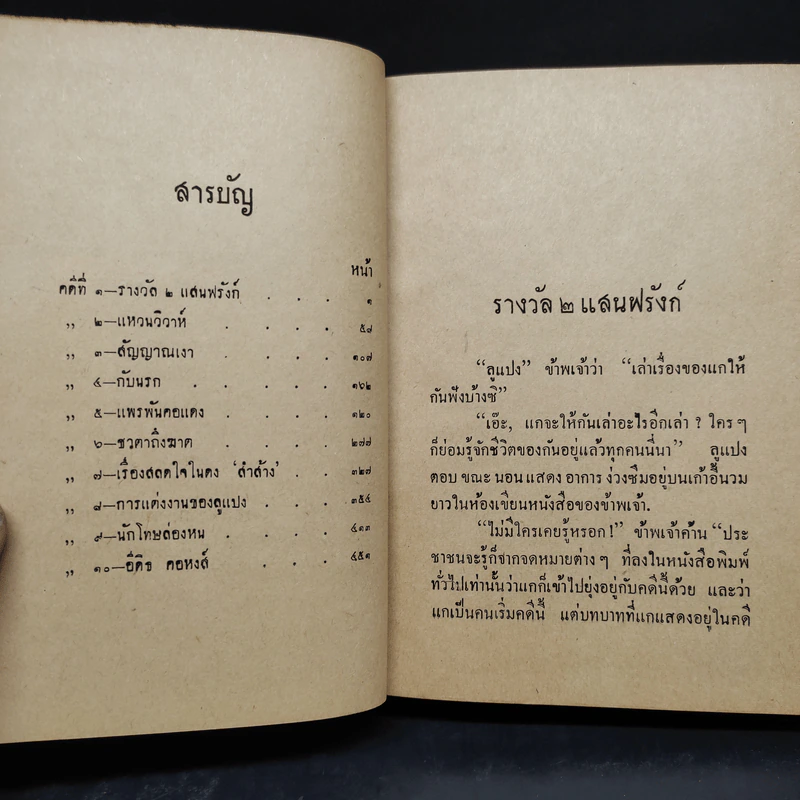 สารบัญ
หน้า
คดีที่ ๑—รางวัล ๒ แสนฟรังก์ . . . ๑
,, ๒—แหวนวิวาห์ . . . . ๕๗
,, ๓—สัญญาณเงา . . . . ๑๐๗
,, ๔—กับนรก . . . . . ๑๖๒
,, ๕—แพรพันคอแดง . . . . ๑๒๐
,, ๖—ชวดาถึงฆาต . . . . ๒๗๗
,, ๗—เรื่องสลดใจในดง ‘ลำล้าง’ . . . ๓๒๗
,, ๘—การแต่งงานของลูแปง . . . ๓๕๔
,, ๙—นักโทษล่องหน . . . . ๔๑๓
,, ๑๐—อีดิธ คอหงส์ . . . ๔๕๑
รางวัล ๒ แสนฟรังก์
“ลูแปง” ข้าพเจ้าว่า “เล่าเรื่องของแกให้
กันฟังบ้างซิ”
“เอ๊ะ, แกจะให้กันเล่าอะไรอีกเล่า ? ใคร ๆ
ก็ย่อมรู้จักชีวิตของกันอยู่แล้วทุกคนนี่นา” ลูแปง
ตอบ ขณะ นอน แสดง อาการ ง่วงซึมอยู่บนเก้าอี้นวม
ยาวในห้องเขียนหนังสือของข้าพเจ้า.
“ไม่มีใครเคยรู้หรอก !” ข้าพเจ้าค้าน “ประ
ชาชนจะรู้ก็จากจดหมายต่าง ๆ ที่ลงในหนังสือพิมพ์
ทั่วไปเท่านั้นว่าแกก็เข้าไปยุ่งอยู่กับคดีนี้ด้วย และว่า
แกเป็นคนเริ่มคดีนี้ แต่บทบาทที่แกแสดงอยู่ในคดี